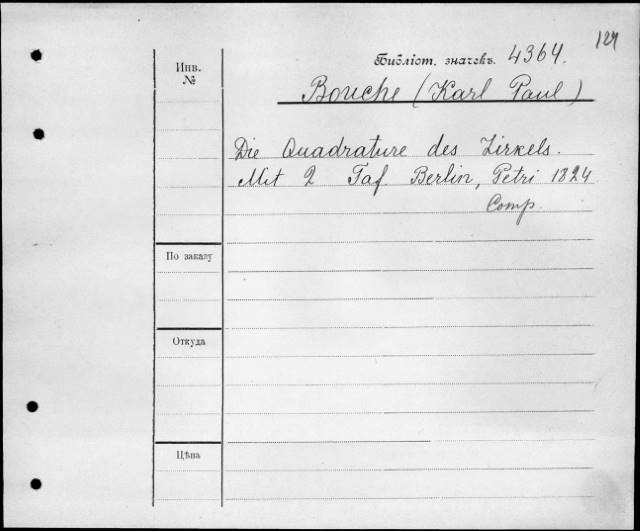 127
Библіот. значекъ. 4364.
Инв.
№
Bouche (Karl Paul)
Die Quadrature des Zirkels.
Mit 2 Taf. Berlin, Petri 1824
Comp.
По заказу
Откуда
Цѣна